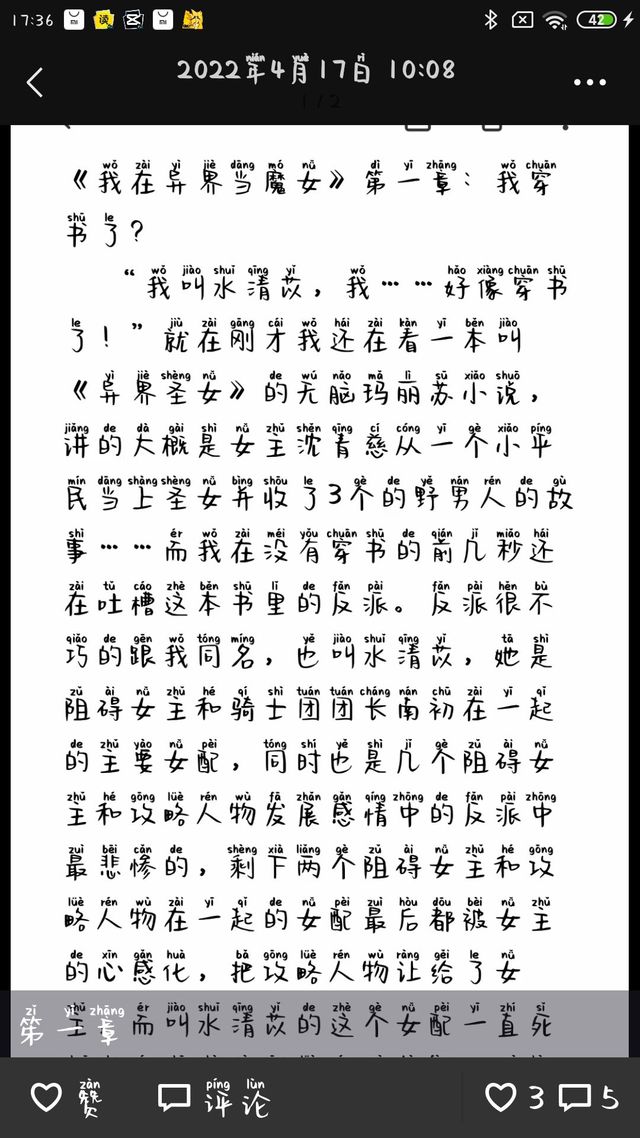 17:36
42
2022年4月17日 10:08
1/2
《我在异界当魔女》第一章：我穿
书了？
“我叫水清苡，我……好像穿书
了！”就在刚才我还在看一本叫
《异界圣女》的无脑玛丽苏小说，
讲的大概是女主沈青慈从一个小平
民当上圣女并收了3个的野男人的故
事……而我在没有穿书的前几秒还
在吐槽这本书里的反派。反派很不
巧的跟我同名，也叫水清苡，她是
阻碍女主和骑士团团长南初在一起
的主要女配，同时也是几个阻碍女
主和攻略人物发展感情中的反派中
最悲惨的，剩下两个阻碍女主和攻
略人物在一起的女配最后都被女主
的心感化，把攻略人物让给了女
主，而叫水清苡的这个女配一直死
第一章
赞
评论
3
5